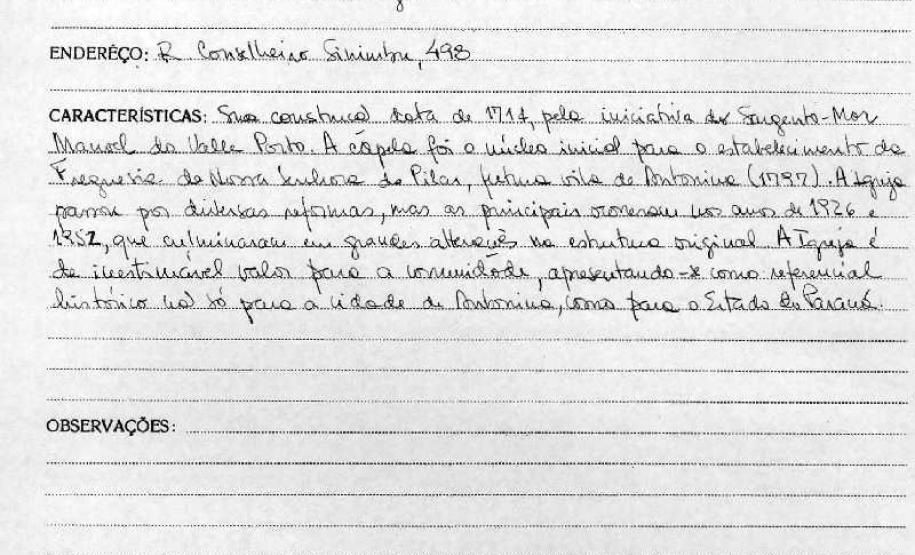 ENDERÊÇO: R Conselheiro Sinimbu, 498
CARACTERÍSTICAS: Sua construcao data de 1714, pela iniciativa do Sargento-Mor
Manoel do Valle Porto. A capela foi o núcleo inicial para o estabelecimento da
Freguesia de Nossa Senhora do Pilar, futura vila de Antonina (1797). A Igreja
passou por diversas reformas, mas as principais ocorreram nos anos de 1926 e
1952, que culminaram em grandes alterações na estrutura original. A Igreja é
de inestimável valor para a comunidade, apresentando-se como referencial
histórico nao só para a cidade de Antonina, como para o Estado do Paraná.
OBSERVAÇÕES: